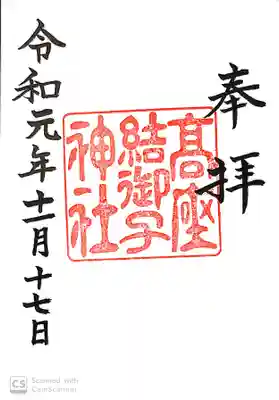 奉拝
高座
結御子
神社
令和元年十一月十七日
CS Scanned with
CamScanner